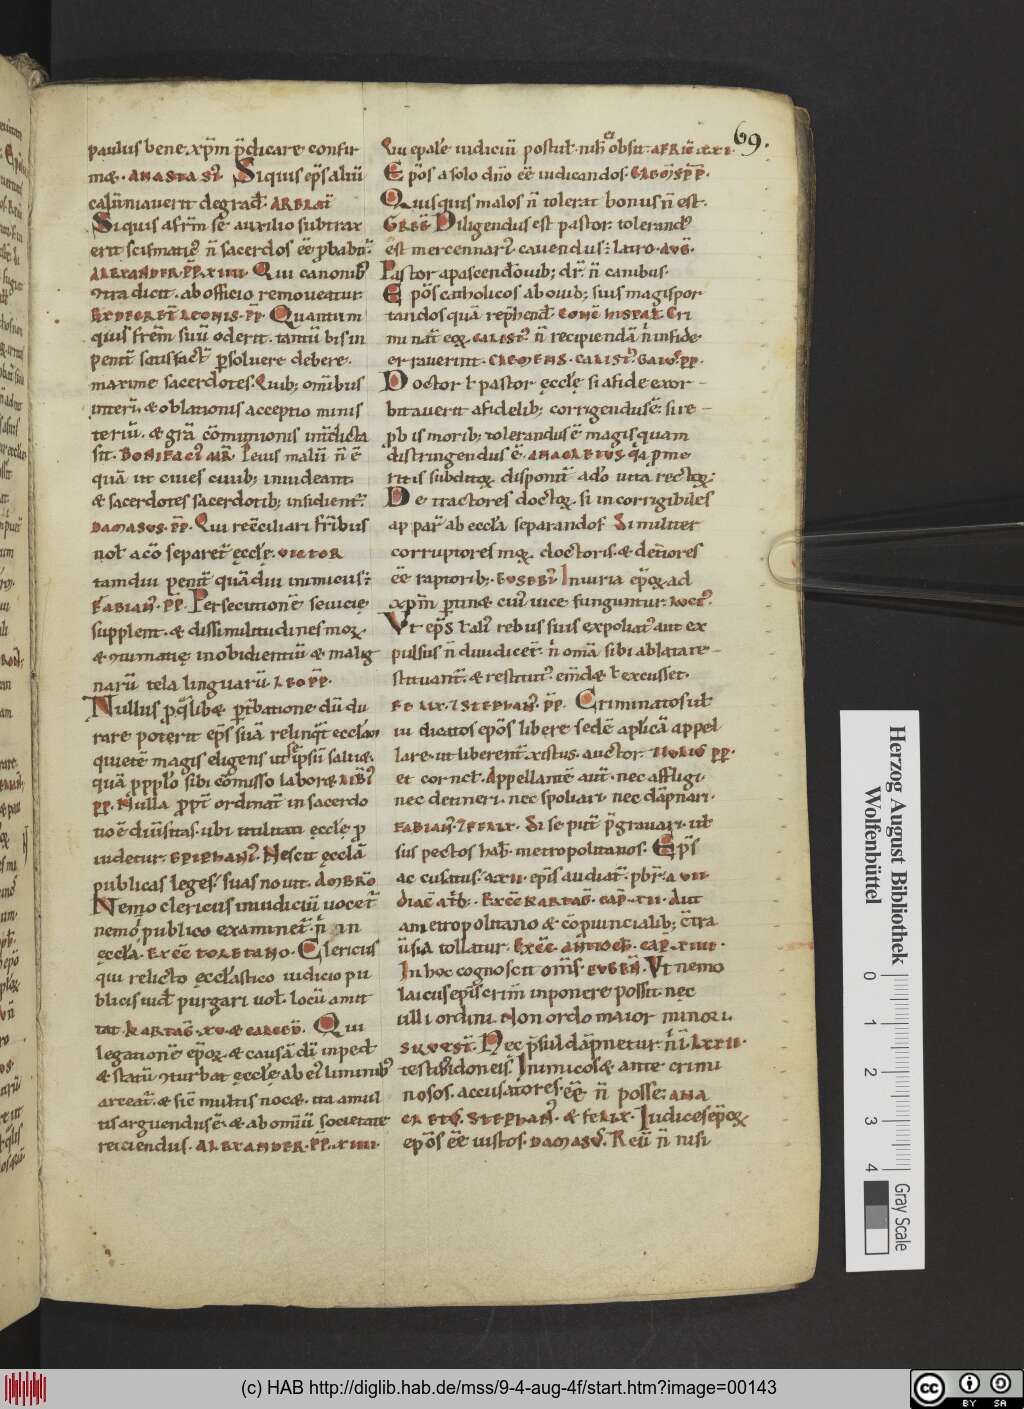 69.
paulus bene xp̄m p̄dicare confir
mat. ANASTASI'. Siquis ep̄s aliū
calūniauerit degrad̄. ARELAT̄
Siquis a fr̄m se auxilio subtrax
erit scismatic' n̄ sacerdos eē p̱babit'.
ALEXANDER. P̄P. XIIII. Qui canonib'
ꝯtradicit. ab officio remoueatur.
EX DECRET̄ LEONIS. P̄P. Quantum
quis fr̄em suū oderit. tantū bis in
penit̄ satisfact̄ p̱soluere debere.
maxime sacerdotes. Quib; om̄ibus
interi. & oblationis acceptio minis
teriū. & gr̄a cōmunionis int̄dicta
sit. BONIFACI' MR̄. Leuis malū n̄ ē
quā ut ciues ciuib; inuideant.
& sacerdotes sacerdotib; insidient'.
DAMASUS. P̄P. Qui rec̄ciliari fr̄ibus
nol̄ a cō separet̄ ęccl̄ę. VICTOR
tamdiu penit̄ quādiu inimicus:
FABIAN'. P̄P. Persecutionē seuicię
supplent. & dissimilitudines moꝝ.
& inimicitię inobidientiū & malig
narū tela linguarū. LEO P̄P.
Nullus p̱ q̄libet p̱t̄batione dū du
rare poterit ep̄s suā relinq̄t eccl̄iam
quietē magis eligens ut se ip̄siū salutē.
quā ppp̄lo sibi cōmisso laborē. LIB̄I'
P̄P. Nulla p̱pt̄ ordinat̄ in sacerdo
tio ē diūsitas. ubi utilitati ęccl̄ę p̱
uidetur. EPIPHANI'. Nescit ęccl̄ā
publicas leges. suas nouit. AMBRŌ
Nemo clericus in iudiciū uocet̄
nemo publico examinet̄. n̄ in
ęccl̄a. EX C̄C TOLETANO. Clericus
qui relicto ęccl̄astico iudicio pu
blicis iud̄ purgari uol̄. locū amit
tat. KARTAḠ. XV. & CALCED̄. Qui
legationē ep̄oꝝ. & causā dū inped̄
& statū ꝯturbat ęccl̄ę. ab ei' liminib'
arceat̄. & sic̄ multis nocet. ita a mul
tis arguendus ē. & ab om̄iū societate
reiciendus. ALEXANDER. P̄P. XIIII.
Qui epal̄e iudiciū postul̄. nih̄ ei obsit. AFRIC̄. XXI.
Ep̄os a solo dn̄o eē iudicandos. CLEM̄S. P̄P.
Quisquis malos n̄ tolerat bonus n̄ est.
GREḠ Diligendus est pastor. tolerand'
est mercennari'. cauendus: latro. AUḠ.
Pastor a pascendo ouib; dr̄. n̄ canibus.
Ep̄os catholicos ab ouib; suis magis por
tandos quā rep̄hend̄. CONC̄ HISPAL̄. Cri
minat̄ eoꝝ. CALIST'. n̄ recipiendā n̄ in fide
erraue rint. CLEMENS. CALIST'. GAIUS. P̄P.
Doctor l̄ pastor ęccl̄ę si a fide exor
bitauerit a fidelib; corrigendus ē. si re
p̱bis morib; tolerandus ē magis quam
distringendus ē. ANACLETUS. q̄a p̱ me
ritis subditoꝝ disponit̄ a dō uita rectoꝝ:
Detractores doctoꝝ. si incorrigibiles
ap par̄ ab eccl̄a separandos. Similit̄
corruptores moꝝ. doctoris. & det̄iores
eē raptorib;. EUSEBI'. Iniuria ep̄oꝝ ad
xp̄m p̱tinet cui' uice funguntur. LUCI'.
Ut ep̄s l̄ ali' rebus suis expoliat' aut ex
pulsus n̄ diiudicet̄. n̄ omā sibi ablata re
stituant̄. & restitut'. eund̄ l̄ excusset.
FELIX. 7 STEPHAN'. P̄P. Criminatos ul̄
iudicatos ep̄os libere sedē aplicā appel
lare. ut liberent̄. xistus auctor. IULIUS P̄P.
et cornel̄. Appellantē aut̄. nec affligi.
nec detineri. nec spoliari. nec dāpnari.
FABIAN'. 7 FELIX. Si se put̄ p̄grauari. ul̄
sus pectos hab̄. metropolitanos. Ep̄s
accusatus. a XII. ep̄is audiat̄. pb̄r. a VII.
diāc̄ a tb'. EX C̄C KARTAḠ. CAP̄. XII. Aut
a metropolitano & cōpuincialib; c̄tra
ūsia tollatur. EX C̄C. ANTIOCH̄. CAP̄. XIIII.
In hoc cognoscit om̄s. EUGEN̄. Ut nemo
laicus ep̄is crim̄ inponere possit. nec
ulli ordini. Non ordo maior minori.
SILVEST̄. Nec p̄sul dāpnetur n̄ i LXXII.
testib; idoneis. Inimicos & ante crimi
nosos. accusatores eē n̄ posse. ANA
CLET'. STEPHAN'. & FELIX. Iudices ep̄oꝝ
ep̄os eē iustos. DAMASU'. Reū n̄ nisi
Herzog August Bibliothek
Wolfenbüttel
0 1 2 3 4
Gray Scale
(c) HAB http://diglib.hab.de/mss/9-4-aug-4f/start.htm?image=00143
cc BY SA